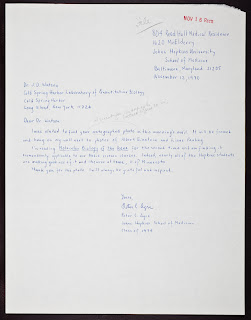 NOV 18 RECD
804 Reed Hall Medical Residence
1620 McElderry
Johns Hopkins University
School of Medicine
Baltimore, Maryland 21205
November 13, 1970
Dr. J. D. Watson
Cold Spring Harbor Laboratory of Quantitative Biology
Cold Spring Harbor
Long Island New York 11724
Dear Dr. Watson:
I was elated to find your autographed photo in this morning's mail. It will be framed
and hung on my wall next to photos of Albert Einstein and Linus Pauling.
I'm reading Molecular Biology of the Gene for the second time and am finding it
immediately applicable to our basic science classes. Indeed, nearly all of the Hopkins students
are making good use of it and several of them,
Thank you for the photo. I will always be grateful and inspired.
Sincerely,
Peter C.
Peter C.
Johns Hopkins School of Medicine
Class of 1974